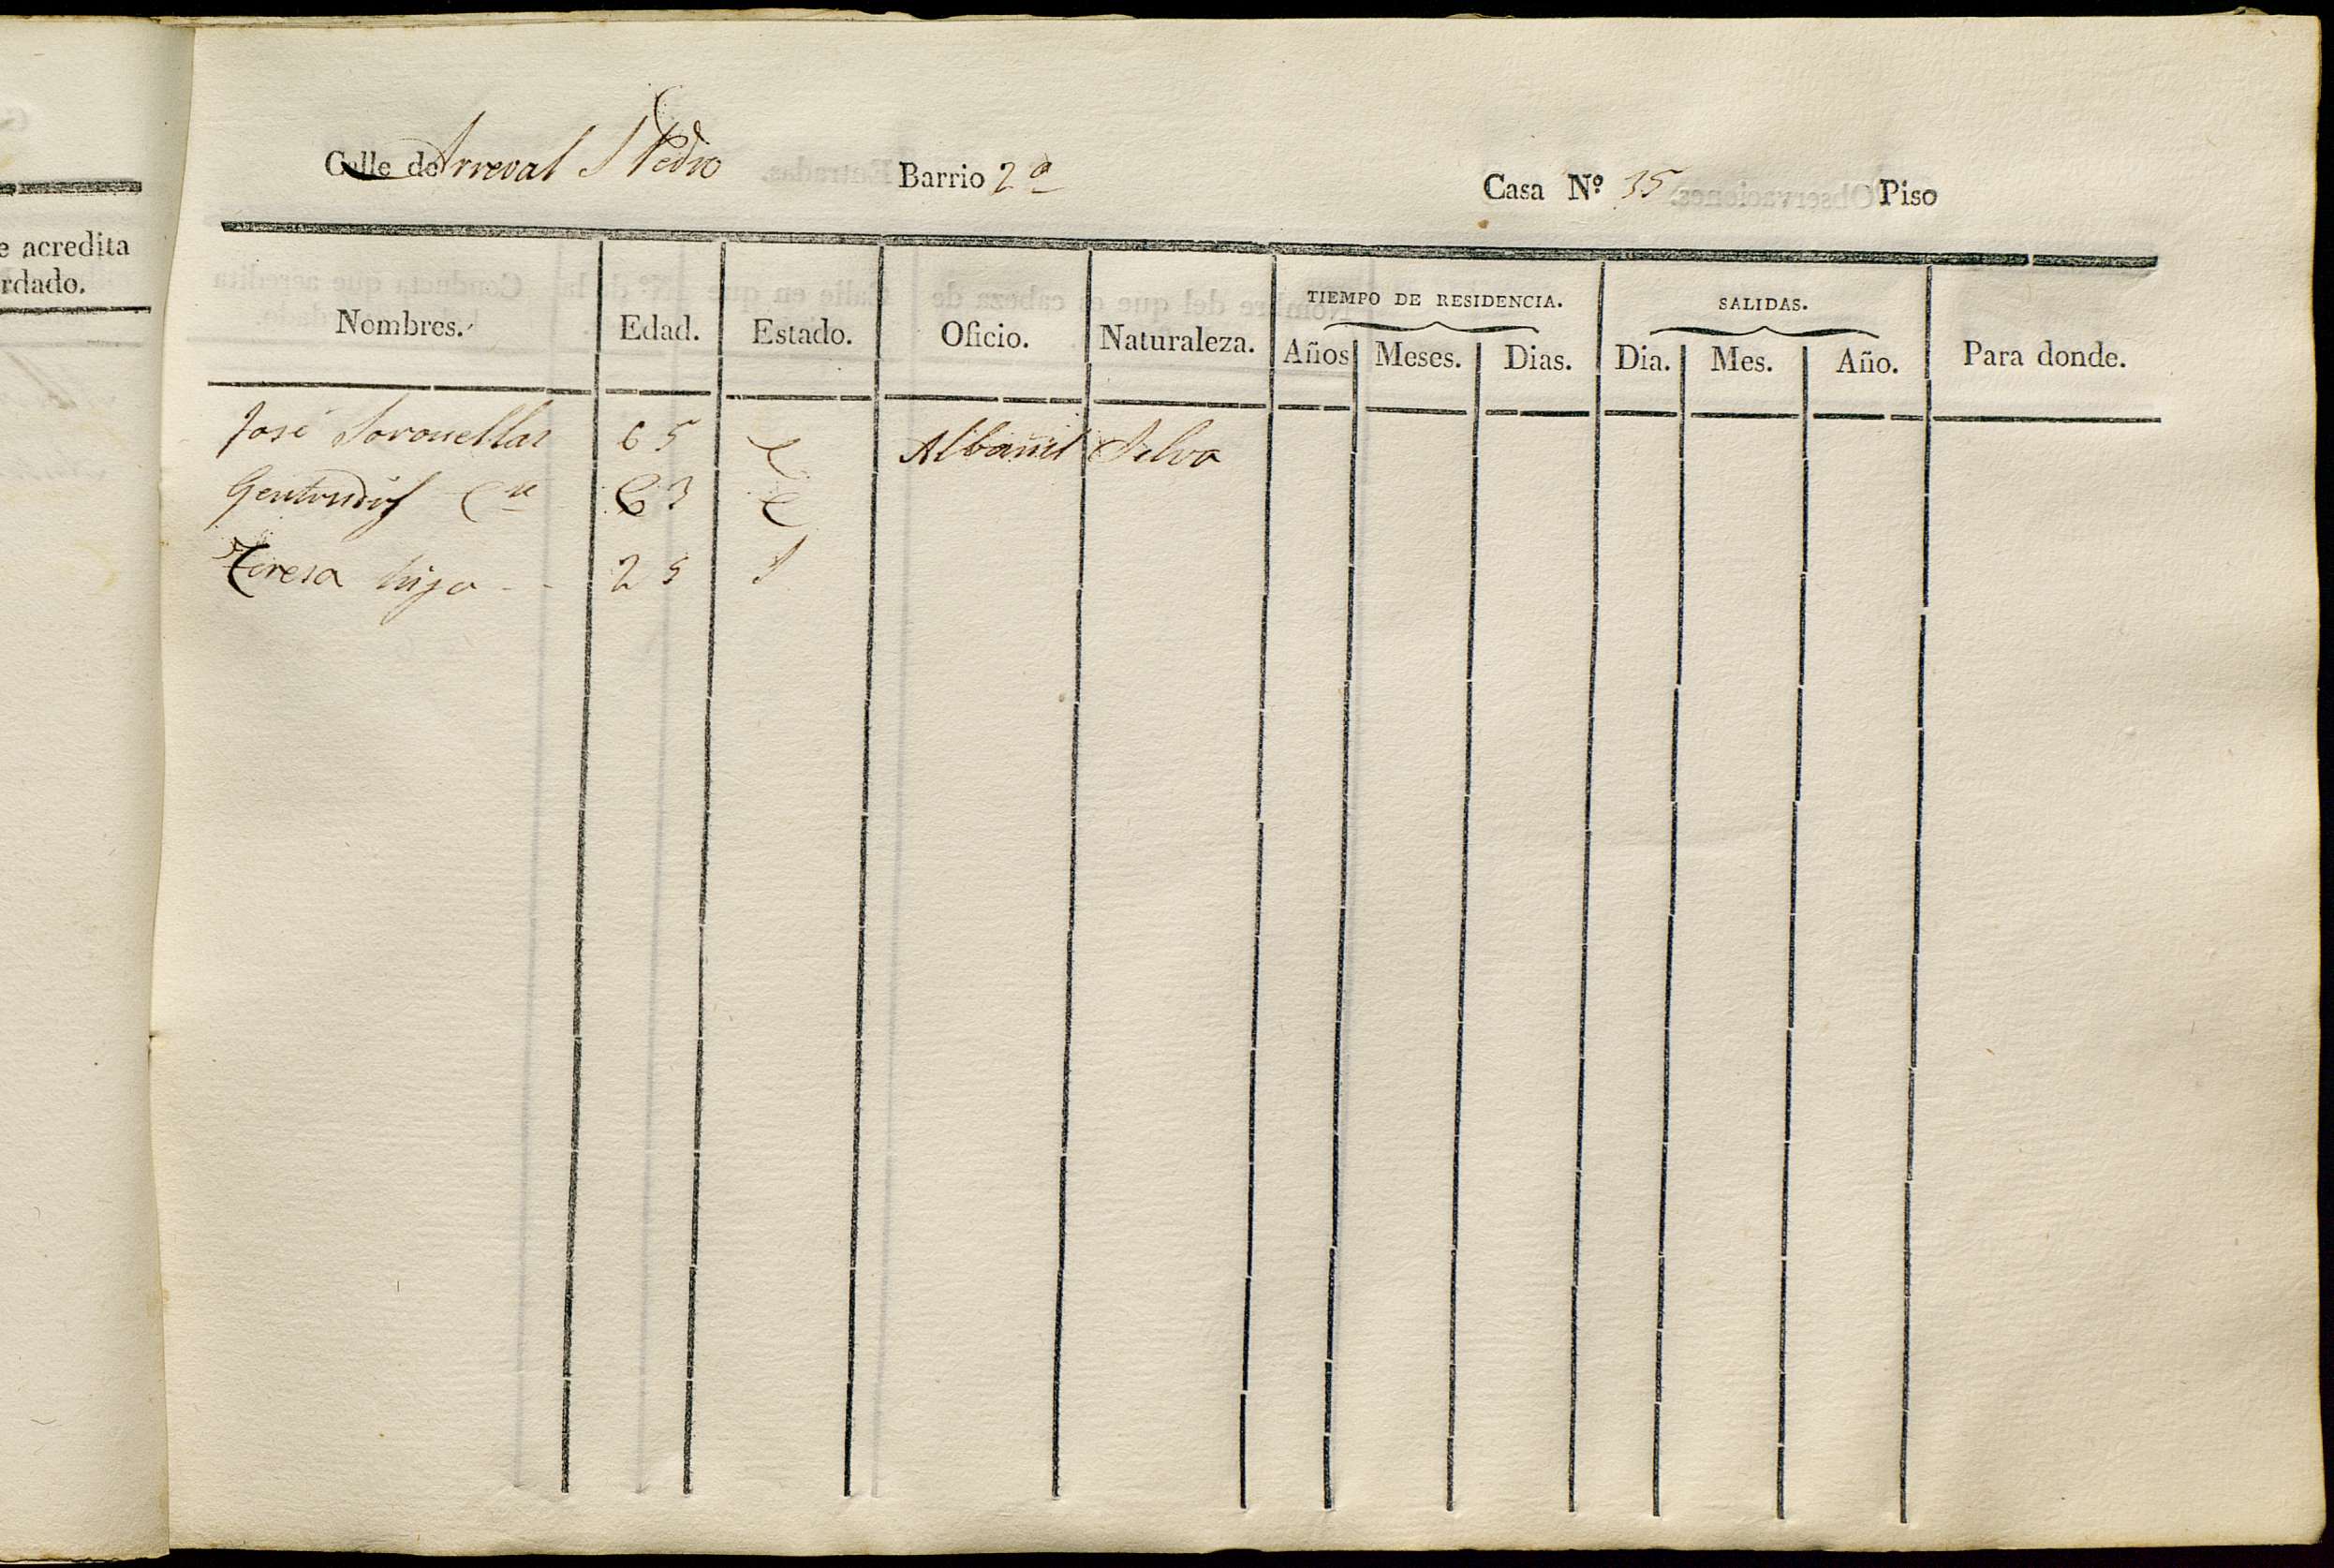 e acredita
rdado.
Calle de Arreval S Pedro Barrio 2º Casa Nº 35 Piso
Nombres. Edad. Estado. Oficio. Naturaleza. TIEMPO DE RESIDENCIA. SALIDAS. Para donde.
Años Meses. Dias. Dia. Mes. Año.
José Soronellas 65 C Albañil Selva
Gertrudis 63 C
Teresa hija 25 S